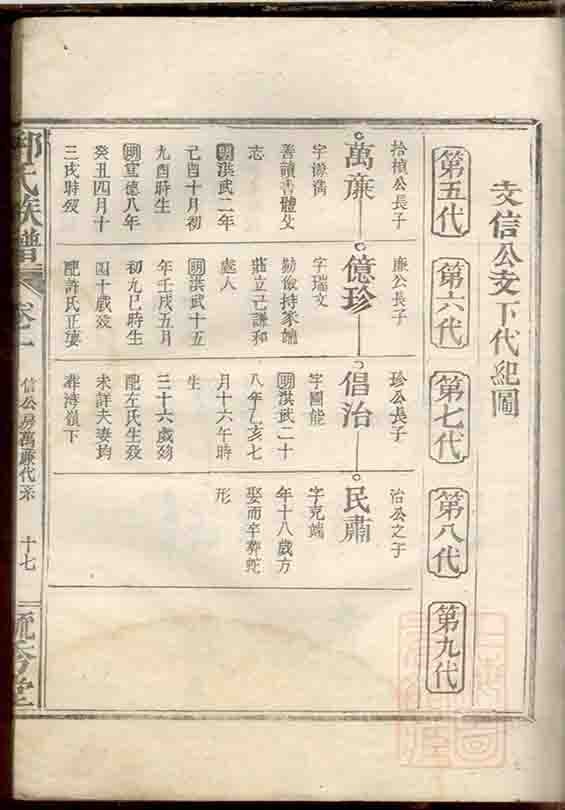 文信公支下代紀圖
第五代
第六代
第七代
第八代
第九代
拾楨公長子
萬廉
字濂溝
善讀書體父
志
明洪武二年
己酉十月初
九酉時生
明宣德八年
癸丑四月十
三戌時歿
廉公長子
億珍
字瑞文
勤儉持家端
莊立己謙和
處人
明洪武十五
年壬戌五月
初九巳時生
四十歲歿
配許氏正葬
珍公長子
倡治
字國能
明洪武二十
八年乙亥七
月十六午時
生
三十六歲歿
配左氏生歿
未詳夫妻均
葬灣嶺下
治公之子
民肅
字克端
年十八歲方
娶而卒葬蛇
形
氏族譜
卷之一
信公房萬廉代系
十七